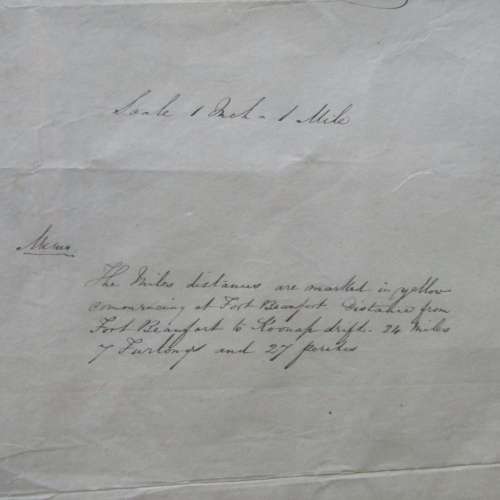 Scale 1 Inch = 1 Mile
Memo
The Miles distances are market in yellow
commencing at Fort Beaufort Distance from
Fort Beaufort to Koonap drift. 24 Miles
7 Furlongs and 27 perches